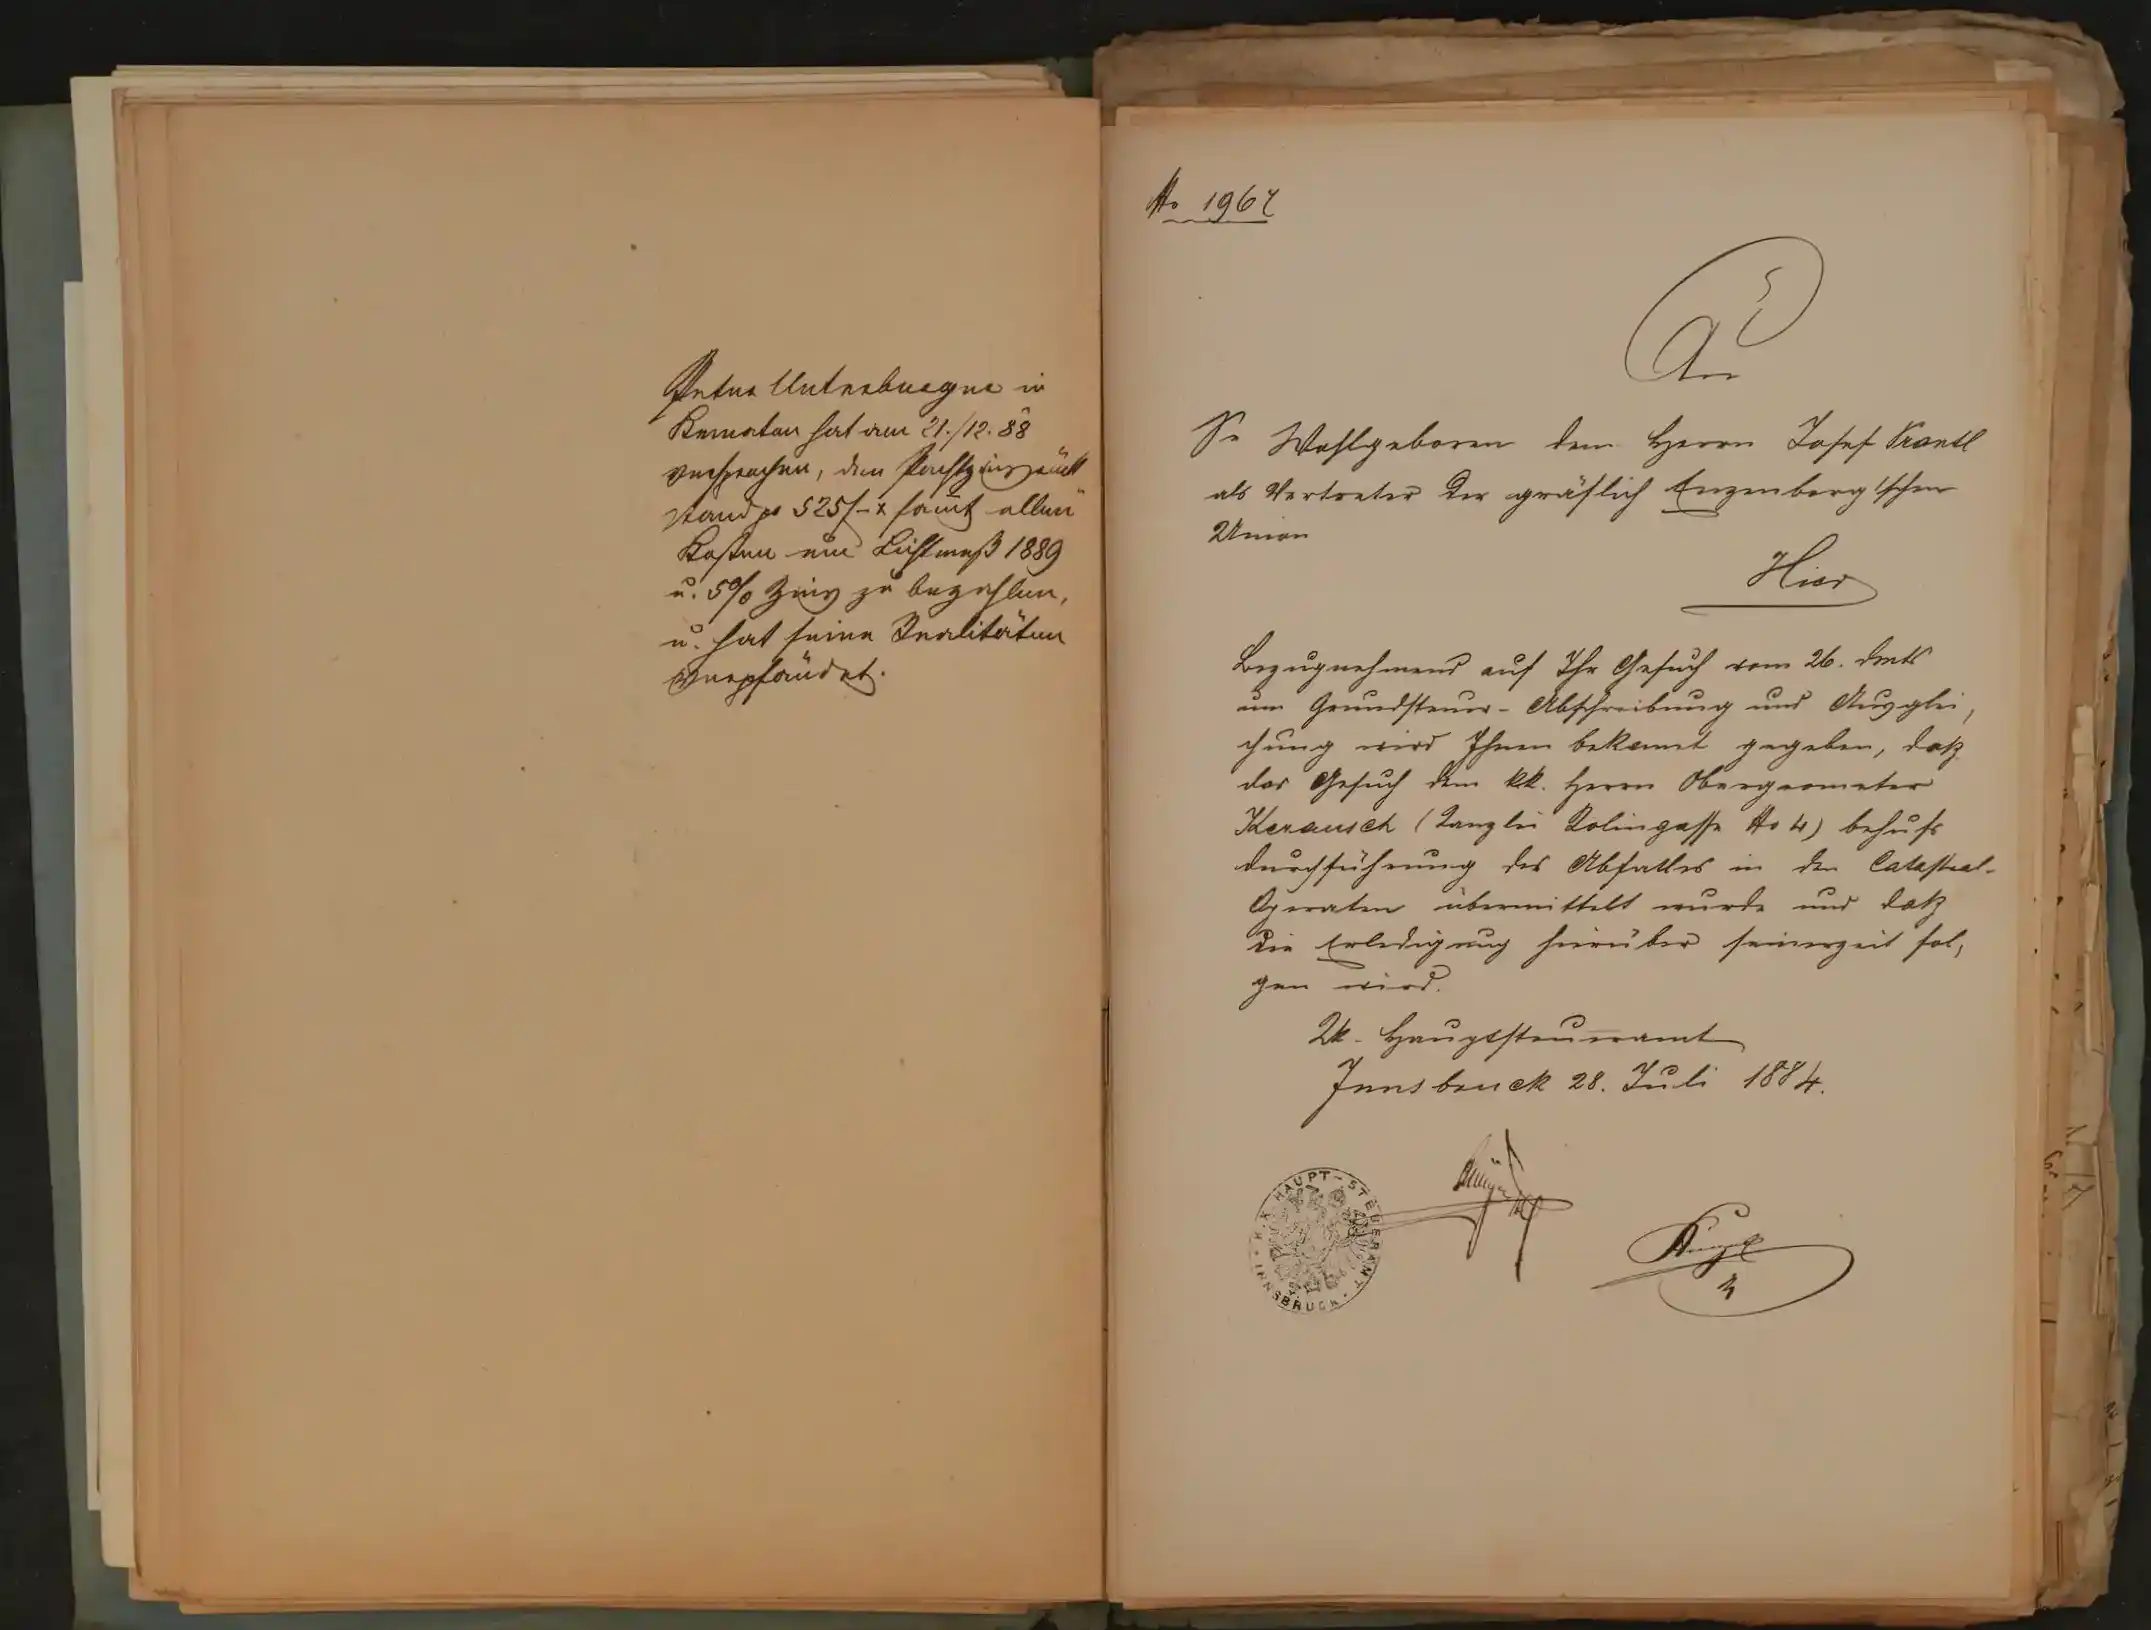 Peter Unterberger in
Kematen hat am 21./12. 88
versprochen, den Pachtzinsrück
stand pr 525 f – x sammt allen
Kosten um Lichtmeß 1889
u. 5% Zins zu bezahlen,
u. hat seine Realitäten
verpfändet.
No 1967
An
Sr Wohlgeboren dem Herrn Josef
als Vertreter der gräflich Enzenberg'schen
Union
Hier
Bezugnehmend auf Ihr Gesuch vom 26. dmts
um Grundsteuer-Abschreibung und Ausglei,
chung wird Ihnen bekannt gegeben, daß
das Gesuch dem kk. Herrn Obergeometer
Kerausch (Kanzlei Kolingasse No 4) behufs
Durchführung des Abfalles in den Catastral-
Operaten übermittelt wurde und daß
die Erledigung hierüber seinerzeit fol,
gen wird.
Kk. Hauptsteueramt
Innsbruck 28. Juli 1884.
K.K. HAUPT-STEUERAMT
INNSBRUCK